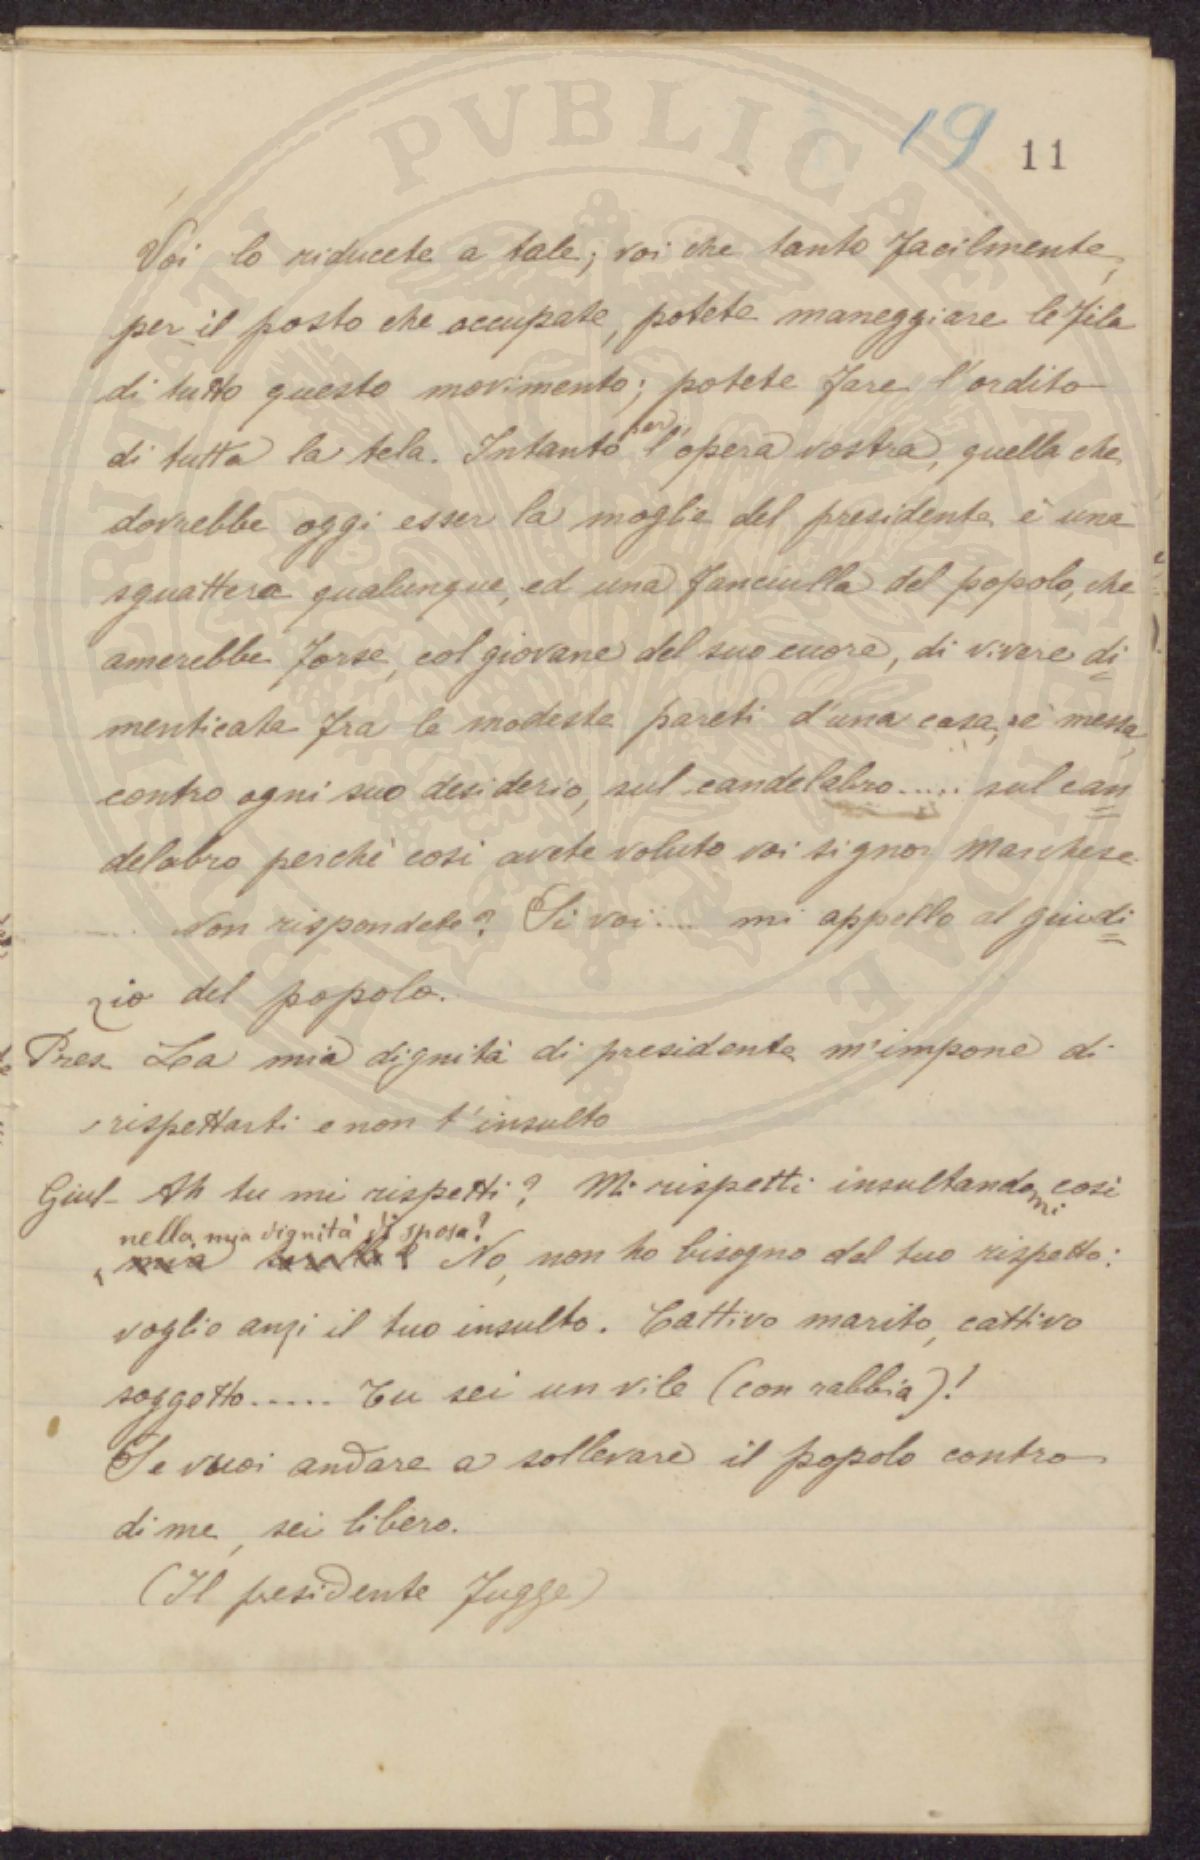 19 11
Voi lo riducete a tale; voi che tanto facilmente,
per il posto che occupate, potete maneggiare le fila
di tutto questo movimento; potete fare l'ordito
di tutta la tela. Intanto per l'opera vostra, quella che
dovrebbe oggi esser la moglie del presidente è una
sguattera qualunque, ed una fanciulla del popolo, che
amerebbe forse, col giovane del suo cuore, di vivere di
menticata fra le modeste pareti d'una casa, è messa,
contro ogni suo desiderio, sul candelabro..... sul can
delabro perchè così avete voluto voi signor Marchese
.... Non rispondete? Si voi .... mi appello al giudi
zio del popolo.
Pres. La mia dignità di presidente m'impone di
rispettarti e non t'insulto
Giul- Ah tu mi rispetti? Mi rispetti insultandomi così
nella mia dignità di sposa?
mia No, non ho bisogno del tuo rispetto:
voglio anzi il tuo insulto. Cattivo marito, cattivo
soggetto..... Tu sei un vile (con rabbia)!
Se vuoi andare a sollevare il popolo contro
di me, sei libero.
(Il presidente fugge)